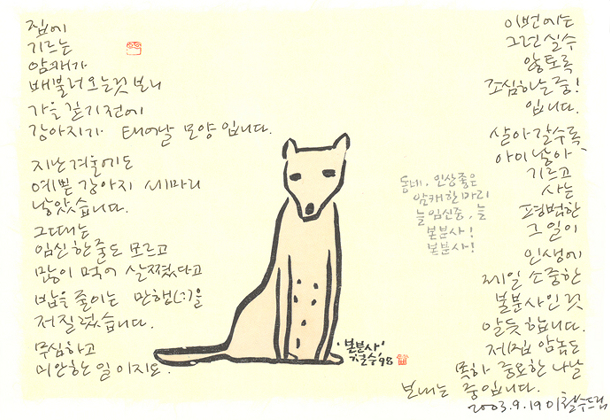 집에
기르는
암캐가
배불러 오는 것 보니
가을 깊기 전에
강아지가 태어날 모양입니다.
지난 겨울에도
예쁜 강아지 세마리
낳았습니다.
그때는
임신한 줄도 모르고
많이 먹어 살쪘다고
밥을 줄이는 만행(!)을
저질렀습니다.
무심하고
미안한 일이지요.
동네. 인상좋은
암캐 한마리
늘 임신중, 늘
본분사!
본분사!
'본분사'
철수 '98
이번에는
그런 실수
않도록
조심하는 중!
입니다.
살아갈수록,
아이 낳아
기르고
사는
평범한
그 일이
인생에
제일 소중한
본분사인 것
알듯 합니다.
제 집 암놈도
목하 중요한 나날
보내는 중입니다.
2003.9.19 이철수드림